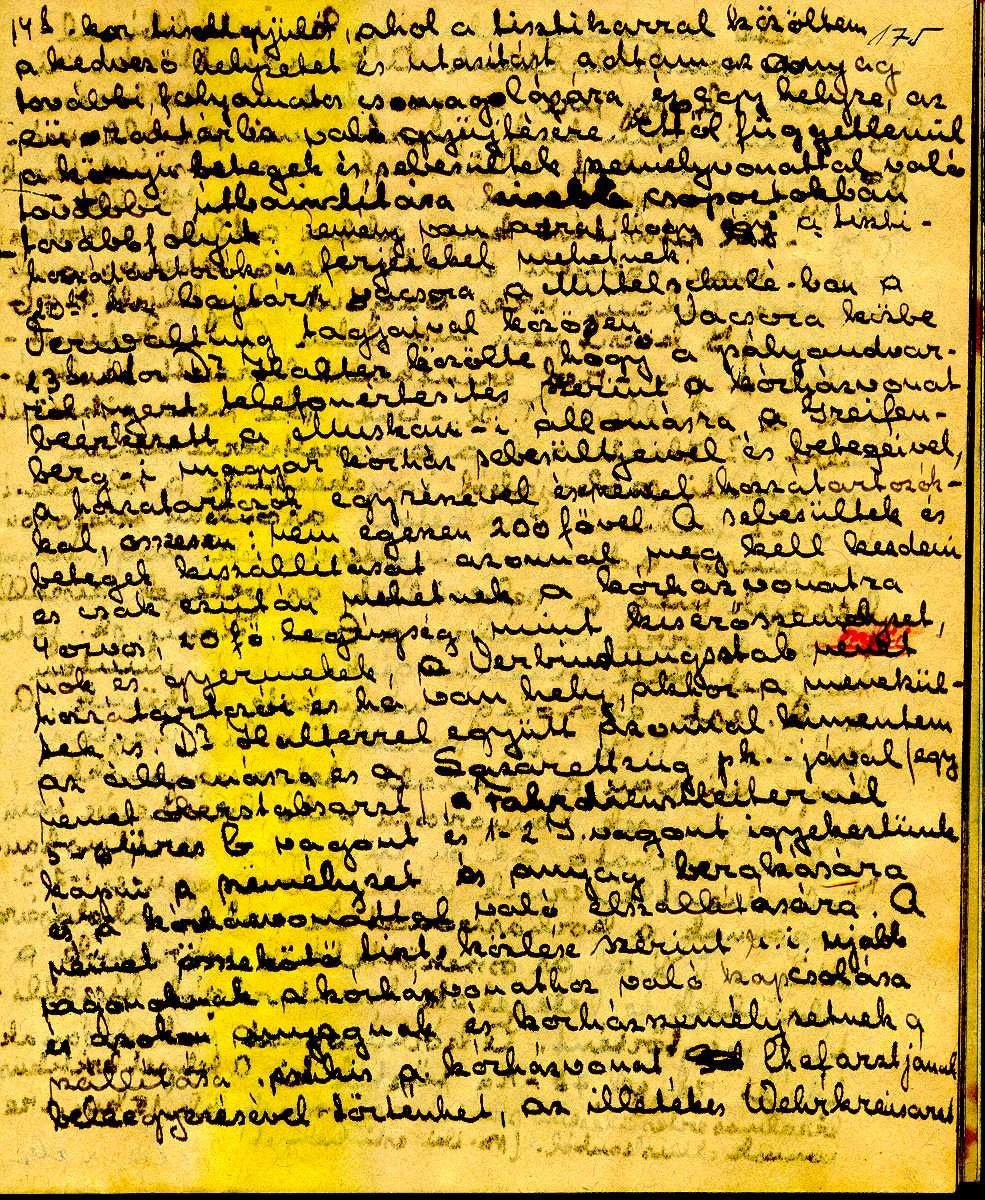 175
14 h kor tiszti gyülés, ahol a tisztikarral közöltem
a kedvező helyzetet és utasítást adtam az anyag
további, folyamatos csomagolására és egy helyre, az
eü. szaktárba való gyüjtésére. Ettől függetlenül
a könnyű betegek és sebesültek személyvonattal való
további útbaindítása kisebb csoportokban
továbbfolyik. Remény van arra, hogy a tiszti-
hozzátartozók is férjeikkel mehetnek.
20h kor bajtársi vacsora a Mittelschule-ban a
Verwaltung tagjaival közösen. Vacsora közbe
23h kor Dr Halter közölte, hogy a pályaudvar-
ról nyert telefonértesítés szerint a kórházvonat
beérkezett a Muskau-i állomásra a Greifen-
berg-i magyar kórház sebesültjeivel és betegeivel,
a hozzátartozók egyrészével és hozzátartozók-
kal, összesen: nem egészen 200 fővel. A sebesültek és
betegek kiszállítását azonnal meg kell kezdeni
és csak ezután mehetnek a kórházvonatra
4 orvos, 20 fő legénység, mint kisérőszemélyzet,
nők és gyermekek, a Verbindungsstab
hozzátartozói és ha van hely, akkor a menekül-
tek is. Dr Halterrel együtt azonnal kimentem
az állomásra és a Lazarettzug pk.-jával /egy
német Oberstabsarzt/ a Fahrdienstleiternél
5 üres G vagont és 1-2 J. vagont igyekeztünk
kapni a személyzet és anyag berakására
és a kórházvonattal való elszállítására. A
német összekötő tiszt közlése szerint u.i. ujabb
vagonoknak a kórházvonathoz való kapcsolása
és azokon anyagnak és kórházszemélyzetnek a
szállítása csakis a kórházvonat Chefarztjának
beleegyezésével történhet, az illetékes Wehrkreisarzt